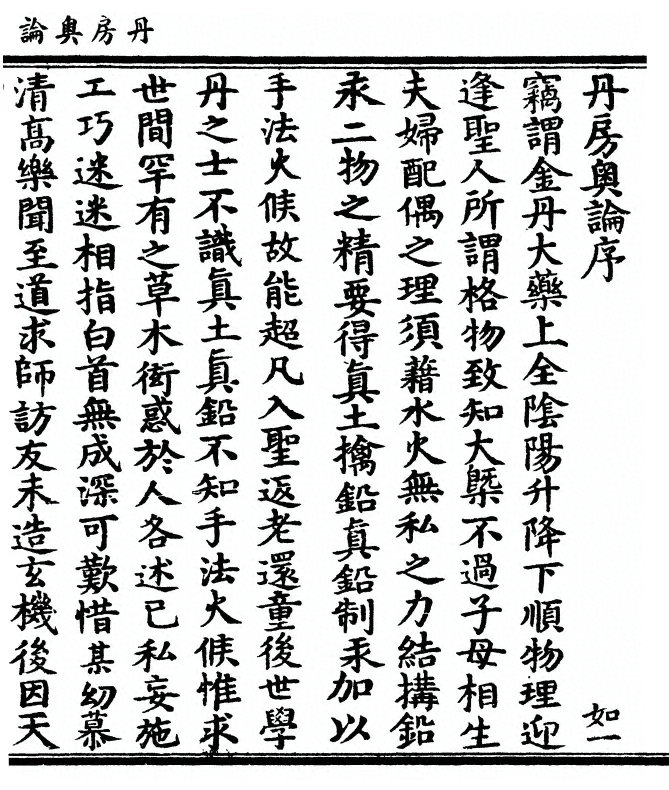 丹房奧論
丹房奧論序
如一
竊謂金丹大藥上全隂陽升降下順物理迎
逢聖人所謂格物致知大槩不過子母相生
夫婦配偶之理須藉水火無私之力結搆鉛
汞二物之精要得眞土擒鉛眞鉛制汞加以
手法火候故能超凡入聖返老還童後世學
丹之士不識眞土眞鉛不知手法火候惟求
世間罕有之草木衒惑於人各述已私妄施
工巧迷迷相指白首無成深可歎惜某幼慕
清髙樂聞至道求師訪友未造玄機後因天